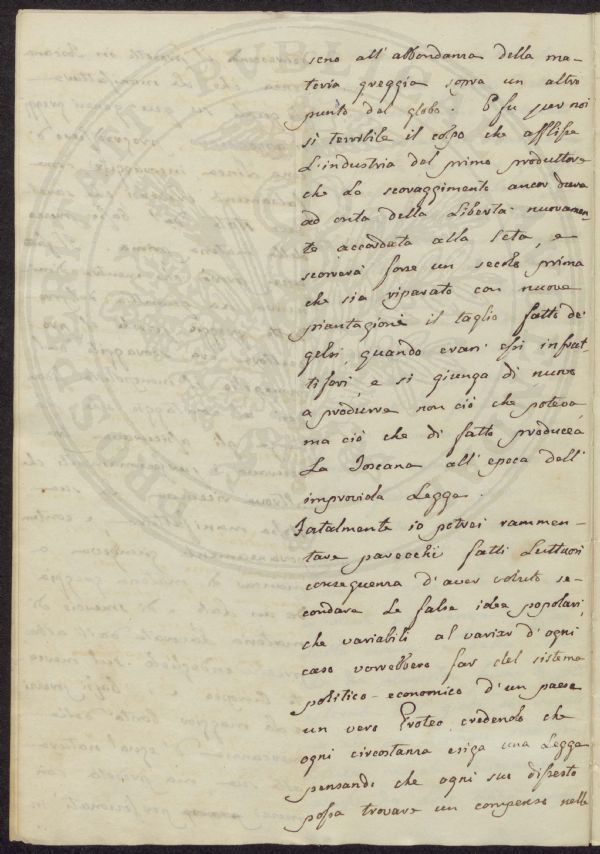 seno all' abbondanza della ma-
teria greggia sopra un altro
punto del globo. E fu per noi
sì terribile il colpo che afflisse
L'industria del primo produttore
che Lo scoraggimento ancor dura
ad onta della Libertà nuovamen-
te accordata alla Seta, e
scorrerà forse un secolo prima
che sia riparato con nuove
piantagioni il taglio fatto de'
gelsi, quando eran' essi infrut-
tiferi, e si giunga di nuovo
a produrre non ciò che poteva,
ma ciò che di fatto producea
La Toscana all' epoca dell'
improvida Legge.
Fatalmente io potrei rammen-
tare parecchi fatti Luttuosi
conseguenza d'aver voluto se-
condare Le false idee popolari,
che variabili al variar d'ogni
caso vorrebbero far del sistema
politico-economico d'un paese
un vero Proteo, credendo che
ogni circostanza esiga una Legge
pensando che ogni suo dissesto
possa trovare un compenso nelle